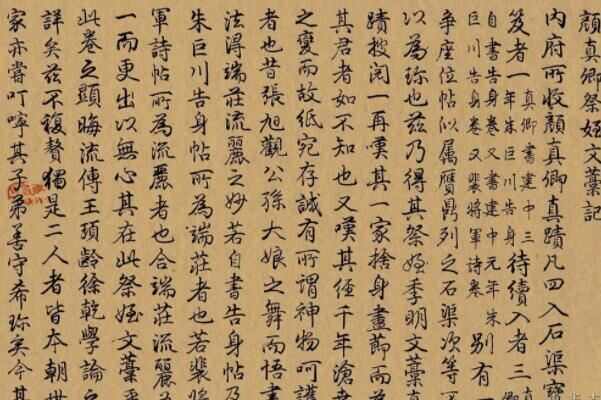 顔真卿祭姪文藁記
内府所收顔真卿真蹟凡四入石渠寳
笈者一真卿書建中三年朱巨川告身待續入者三
自書告身卷又書建中元年朱巨川告身卷又裴將軍詩卷別有一
争座位帖似属贋鼎列之石渠次等不
以為珎也兹乃得其祭姪季明文藁真
蹟披閲一再嘆其一家捨身盡節而為
其君者如不知也又嘆其經千年滄桒
之變而故紙宛存誠有所謂神物呵護
者也昔張旭觀公孫大娘之舞而悟書
法得端莊流麗之妙若自書告身帖乃
朱巨川告身帖所為端莊者也若裴將
軍詩帖所為流麗者也合端莊流麗
一而更出以無心其在此祭姪文藁
此卷之顛晦流傳王頊齡徐乾學論之
詳矣兹不復贅獨是二人者皆本朝世
家亦嘗叮嚀其子弟善守希珎矣今其